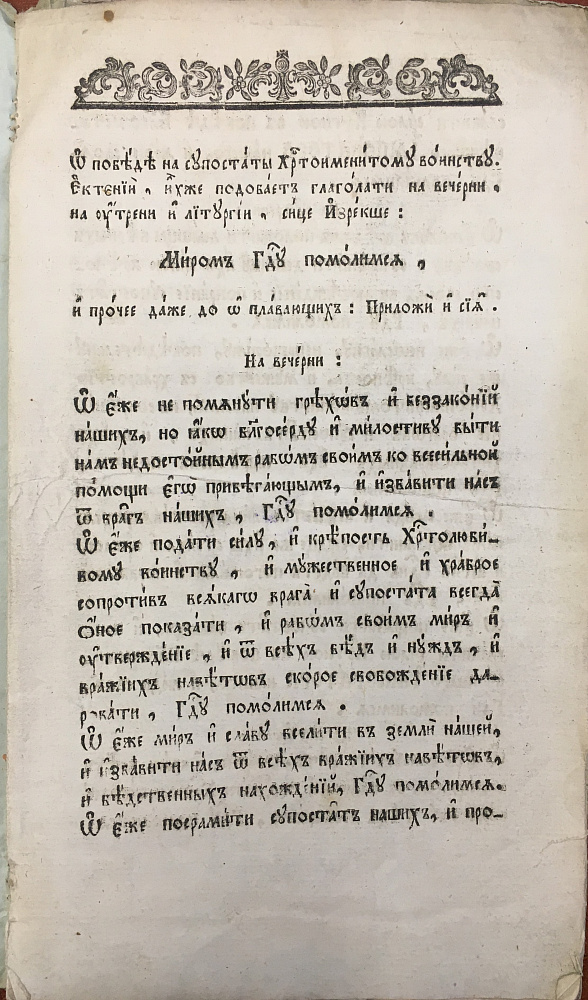 Ѡ҆ побѣ́дѣ на сꙋпоста́ты Хрⷭ҇тоимени́томꙋ во́инствꙋ.
Е҆ктенїи̑, и҆́хже подоба́етъ глаго́лати на вече́рни,
на ᲂу҆́трени и҆ лїтꙋргі́и, си́це И҆зре́кше:
Ми́ромъ Гдⷭ҇ꙋ помо́лимсѧ,
и҆ про́чее да́же до ѡ҆ пла́вающихъ: Приложи́ и҆ сїѧ̑.
На вече́рни:
Ѡ҆ є҆́же не помѧнꙋ́ти грѣхѡ́въ и҆ беззако́нїй
на́шихъ, но ꙗ҆́кѡ бл҃госе́рдꙋ и҆ ми́лостивꙋ бы́ти
на́мъ недосто́йнымъ рабѡ́мъ свои̑мъ ко всеси́льной
по́мощи є҆гѡ̀ прибѣга́ющымъ, и҆ и҆зба́вити на́съ
ѿ вра̑гъ на́шихъ, Гдⷭ҇ꙋ помо́лимсѧ.
Ѡ҆ є҆́же пода́ти си́лꙋ, и҆ крѣ́пость Хрⷭ҇толюби́-
вомꙋ во́инствꙋ, и҆ мꙋ́жественное и҆ хра́брое
сопроти́въ всѧ́кагѡ врага̀ и҆ сꙋпоста́та всегда̀
ѻ҆́ное показа́ти, и҆ рабѡ́мъ свои̑мъ ми́ръ и҆
ᲂу҆твержде́нїе, и҆ ѿ всѣ́хъ бѣ́дъ и҆ нꙋ́ждъ, и҆
вра́жїихъ навѣ́тѡвъ ско́рое свобожде́нїе да-
рова́ти, Гдⷭ҇ꙋ помо́лимсѧ.
Ѡ҆ є҆́же ми́ръ и҆ сла́вꙋ всели́ти въ землѝ на́шей,
и҆ и҆зба́вити на́съ ѿ всѣ́хъ вра́жїихъ навѣ́тѡвъ,
и҆ бѣ́дственныхъ нахожде́нїй, Гдⷭ҇ꙋ помо́лимсѧ.
Ѡ҆ є҆́же посрами́ти сꙋпоста̑тъ на́шихъ, и҆ про-